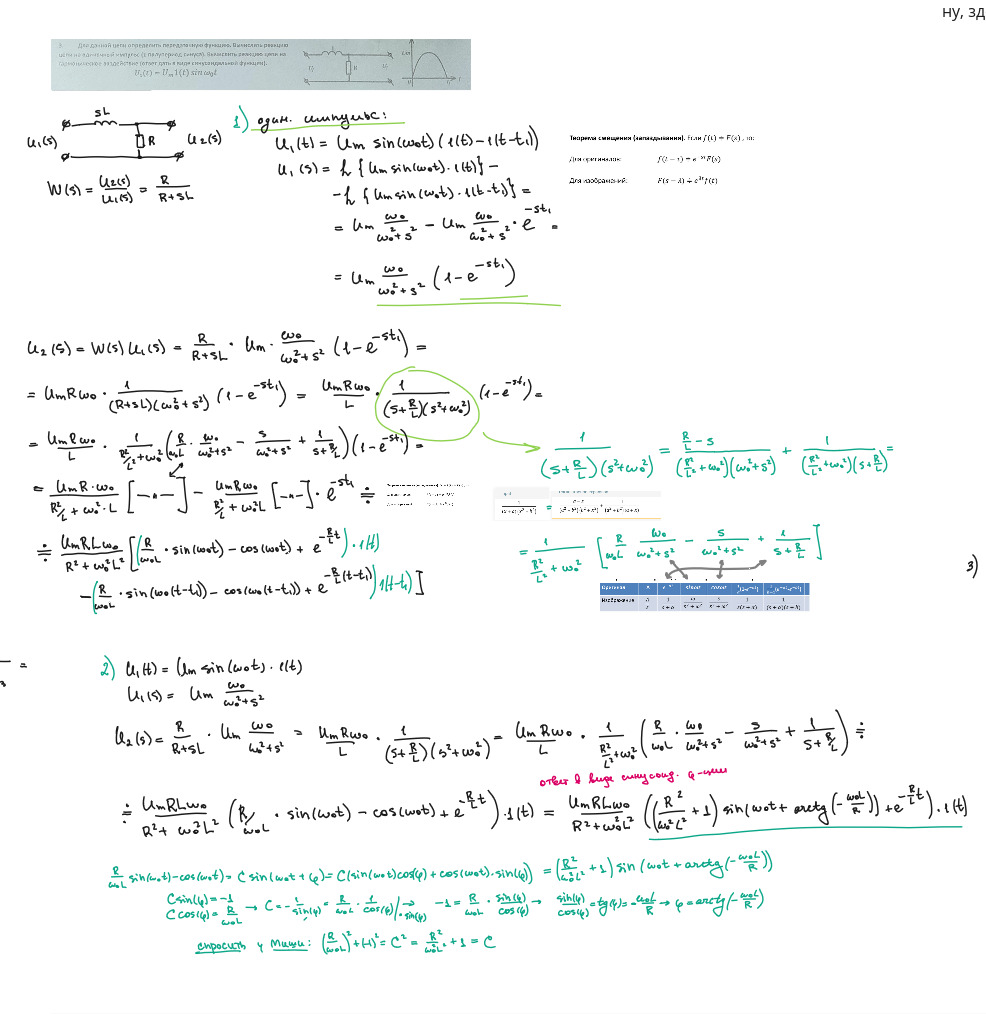 ну, зд
3. Для данной цепи определить передаточную функцию. Вычислить реакцию
цепи на одиночный импульс (1 полупериод синуса). Вычислить реакцию цепи на
гармоническое воздействие (ответ дать в виде синусоидальной функции).
U₁(t) = Uₘ1(t) sin ω₀t
sL
U₁(s)
R
U₂(s)
W(s) = U₂(s)/U₁(s) = R/(R+sL)
1) один. импульс:
U₁(t) = Um sin(ω₀t) (1(t) − 1(t−t₁))
U₁(s) = L {Um sin(ω₀t)·1(t)} −
− L {Um sin(ω₀t)·1(t−t₁)} =
= Um ω₀/(ω₀²+s²) − Um ω₀/(ω₀²+s²) · e^(−st₁) =
= Um ω₀/(ω₀²+s²) (1−e^(−st₁))
Теорема смещения (запаздывания). Если f(t) ÷ F(s), то:
Для оригиналов: f(t − τ) ÷ e^(−sτ)F(s)
Для изображений: F(s − λ) ÷ e^(λt)f(t)
U₂(s) = W(s) U₁(s) = R/(R+sL) · Um · ω₀/(ω₀²+s²) (1−e^(−st₁)) =
= UmRω₀ · 1/((R+sL)(ω₀²+s²)) (1−e^(−st₁)) = UmRω₀/L · 1/((s+R/L)(s²+ω₀²)) (1−e^(−st₁)) =
= UmRω₀/L · 1/(R²/L²+ω₀²) (R/(ω₀L) · ω₀/(ω₀²+s²) − s/(ω₀²+s²) + 1/(s+R/L)) (1−e^(−st₁)) =
= UmR·ω₀/(R²/L + ω₀²·L) [−"−] − UmRω₀/(R²/L + ω₀²L) [−"−] · e^(−st₁) ÷
÷ UmRLω₀/(R²+ω₀²L²) [(R/(ω₀L) · sin(ω₀t) − cos(ω₀t) + e^(−R/L t))·1(t)
−(R/(ω₀L) · sin(ω₀(t−t₁)) − cos(ω₀(t−t₁)) + e^(−R/L (t−t₁)))1(t−t₁)]
1/((s+R/L)(s²+ω₀²)) = (R/L − s)/((R²/L²+ω₀²)(ω₀²+s²)) + 1/((R²/L²+ω₀²)(s+R/L)) =
= 1/(R²/L²+ω₀²) [R/(ω₀L) ω₀/(ω₀²+s²) − s/(ω₀²+s²) + 1/(s+R/L)]
Оригинал
Изображение
3)
2) U₁(t) = Um sin(ω₀t)·1(t)
U₁(s) = Um ω₀/(ω₀²+s²)
U₂(s) = R/(R+sL) · Um ω₀/(ω₀²+s²) = UmRω₀/L · 1/((s+R/L)(s²+ω₀²)) = UmRω₀/L · 1/(R²/L²+ω₀²) (R/(ω₀L) · ω₀/(ω₀²+s²) − s/(ω₀²+s²) + 1/(s+R/L)) ÷
ответ в виде синусоид. ф-ции
÷ UmRLω₀/(R²+ω₀²L²) (R/(ω₀L) · sin(ω₀t) − cos(ω₀t) + e^(−R/L t))·1(t) = UmRLω₀/(R²+ω₀²L²) ((R²/(ω₀²L²)+1) sin(ω₀t + arctg(−ω₀L/R)) + e^(−R/L t))·1(t)
R/(ω₀L) sin(ω₀t) − cos(ω₀t) = C sin(ω₀t+φ) = C(sin(ω₀t)cos(φ) + cos(ω₀t)·sin(φ)) = (R²/(ω₀²L²)+1) sin(ω₀t + arctg(−ω₀L/R))
C sin(φ) = −1
C cos(φ) = R/(ω₀L) → C = −1/sin(φ) = R/(ω₀L) · 1/cos(φ) |·sin(φ) → −1 = R/(ω₀L) · sin(φ)/cos(φ) → sin(φ)/cos(φ) = tg(φ) = −ω₀L/R → φ = arctg(−ω₀L/R)
спросить у Миши: (R/(ω₀L))² + (−1)² = C² = R²/(ω₀²L²) + 1 = C